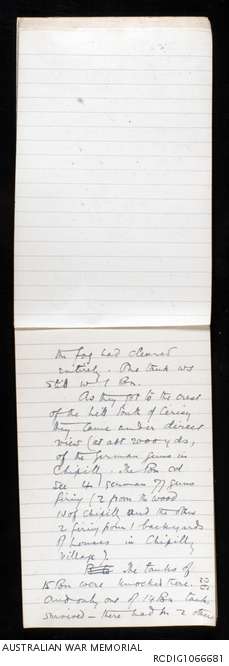 the fog had cleared
entirely. One tank ws
still w 1 Bn.
As they got to the crest
of the hill back of Cerisy
they came under direct
view (at abt 2000 yds,
of the german guns in
Chipilly. The Bn cd
see 4 german 77 guns
firing (2 from the wood
N of Chipilly and the other
2 firing from backyards
of houses in Chipilly
village).
The tanks of
15 Bn were knocked here.
and only one of 14 Bn tanks
survived - there had bn 2 other
26
AUSTRALIAN WAR MEMORIAL
RCDIG1066681